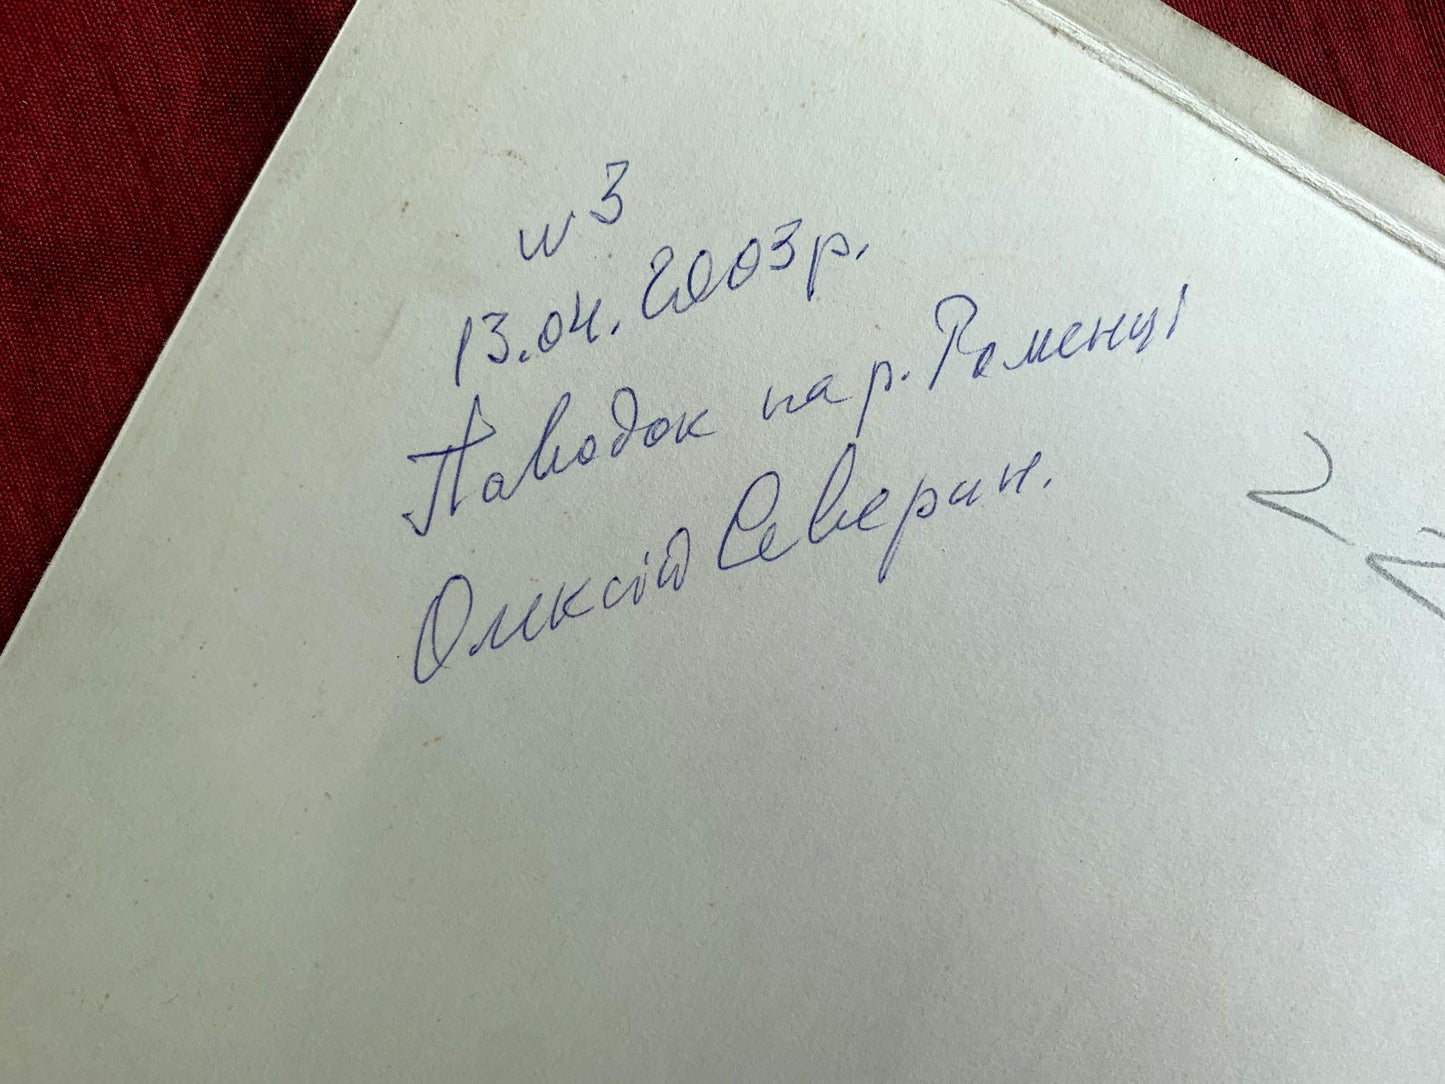 №3
13.04.2003р.
Паводок на р. Роменці
Олексій Северин.